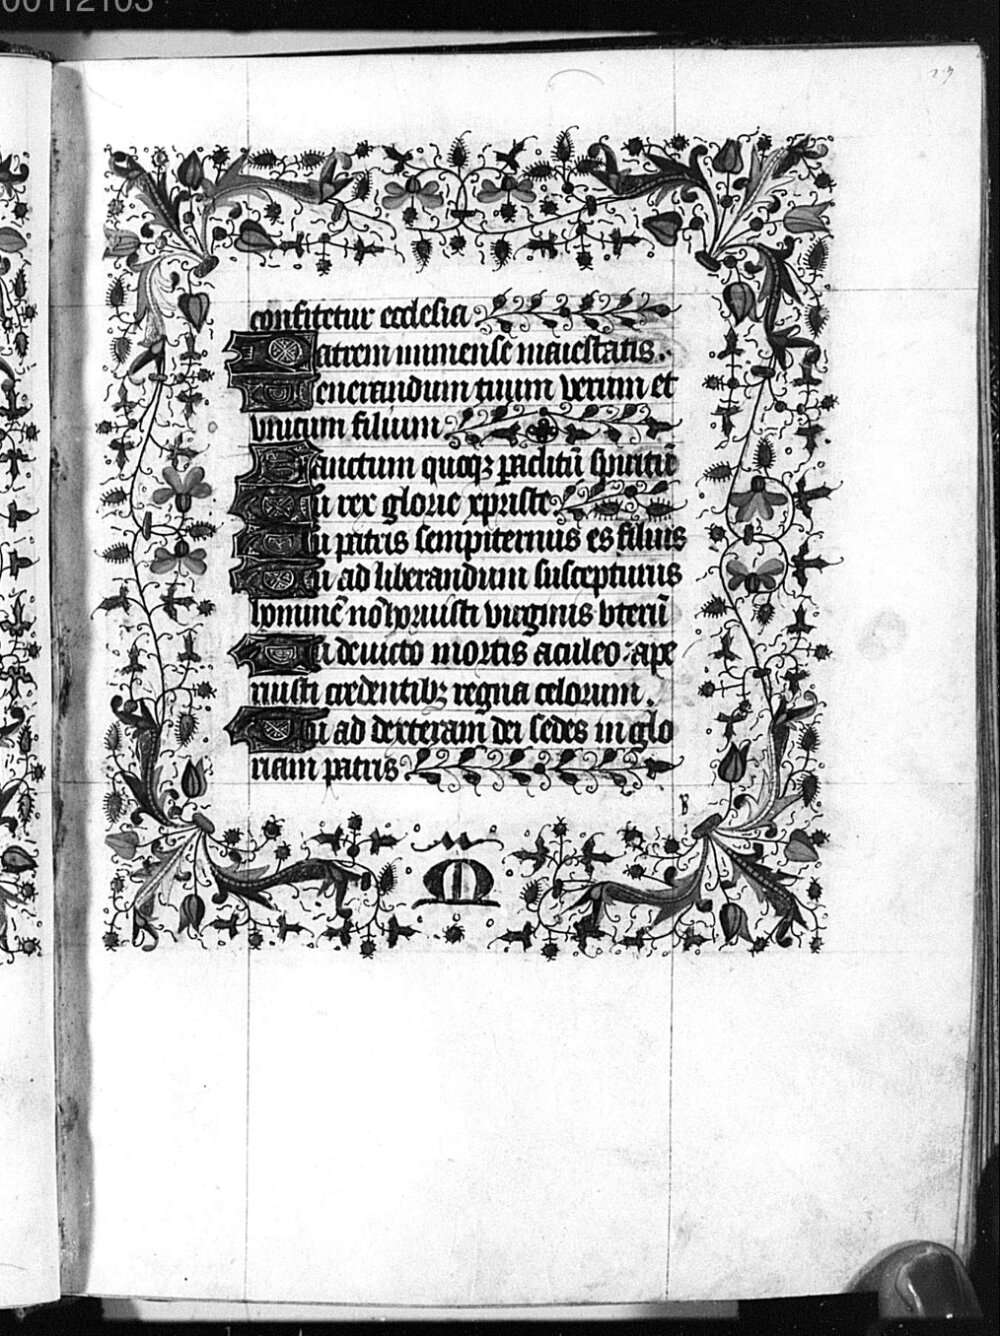 00112103
23
confitetur ecclesia
Patrem inmense maiestatis.
Venerandum tuum verum et
vnicum filium
Sanctum quoqꝫ ꝑaclitū spiritū
Tu rex glorie xpriste
Tu patris sempiternus es filius
Tu ad liberandum suscepturus
hominē nō horruisti virginis vterū
Tu deuicto mortis aculeo: ape
ruisti credentibꝫ regna celorum.
Tu ad dexteram dei sedes in glo
riam patris
B
M